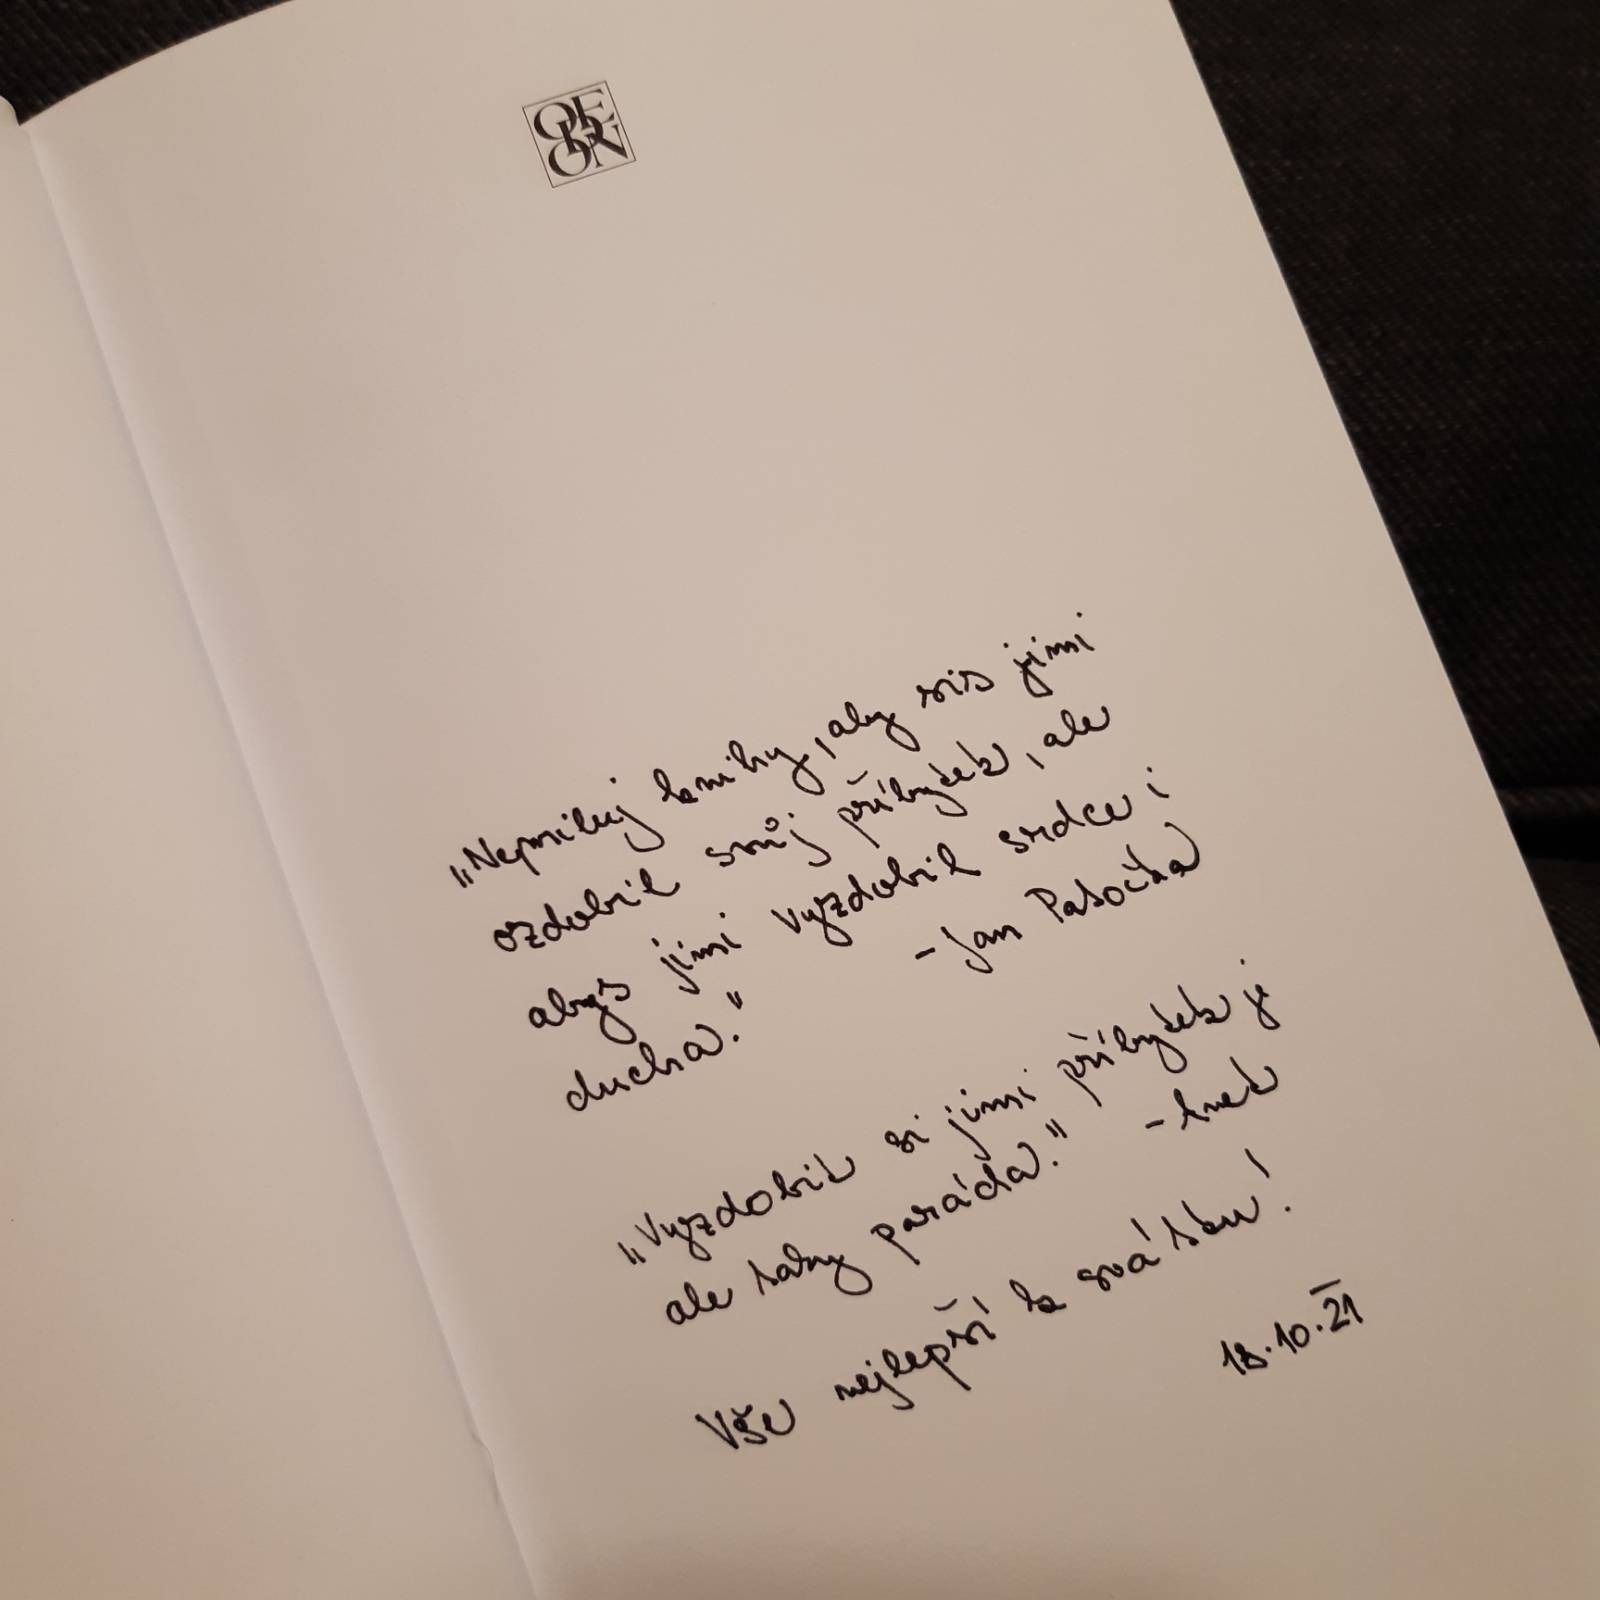 ODEON
„Nemiluj knihy, aby sis jimi
ozdobil svůj příbytek, ale
abys jimi vyzdobil srdce i
ducha."
- Jan Patočka
„Vyzdobit si jimi příbytek je
ale taky paráda." -
Vše nejlepší k svátku!
18.10.21